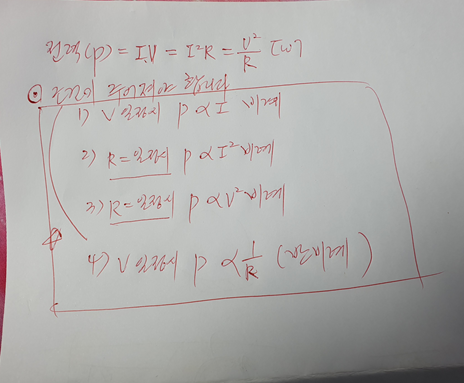 전력(P) = I.V = I²R = V²/R [W]
⊙ 조건이 주어져야 합니다
1) V 일정시 P ∝ I 비례
2) R = 일정시 P ∝ I² 비례
3) R = 일정시 P ∝ V² 비례
4) V 일정시 P ∝ 1/R (반비례)